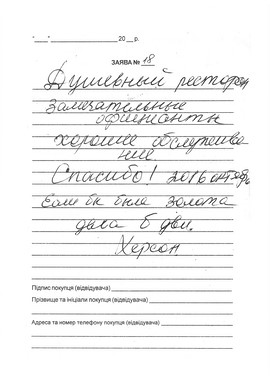 "____" ____________ 20__р.
ЗАЯВА № 18
Душевный ресторан
Замечательные
официанты
хорошее обслужива
ние.
Спасибо! 2016 октябрь
Если бы была золота
дала б два.
Херсон.
Підпис покупця (відвідувача)
Прізвище та ініціали покупця (відвідувача)
Адреса та номер телефону покупця (відвідувача)